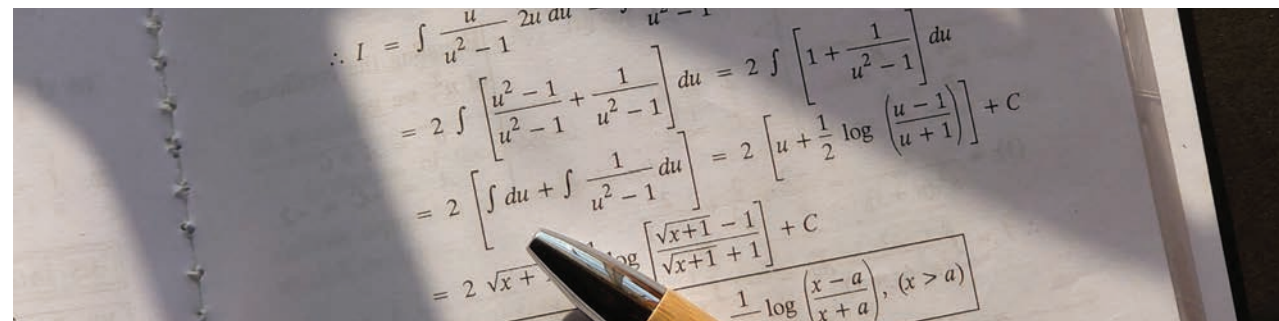 ∴ I = ∫ u/(u² − 1) 2u du
= 2 ∫ [(u² − 1)/(u² − 1) + 1/(u² − 1)] du = 2 ∫ [1 + 1/(u² − 1)] du
= 2 [∫ du + ∫ 1/(u² − 1) du] = 2 [u + 1/2 log ((u − 1)/(u + 1))] + C
= 2 √x + log [(√x+1 − 1)/(√x+1 + 1)] + C
1 log ((x − a)/(x + a)), (x > a)